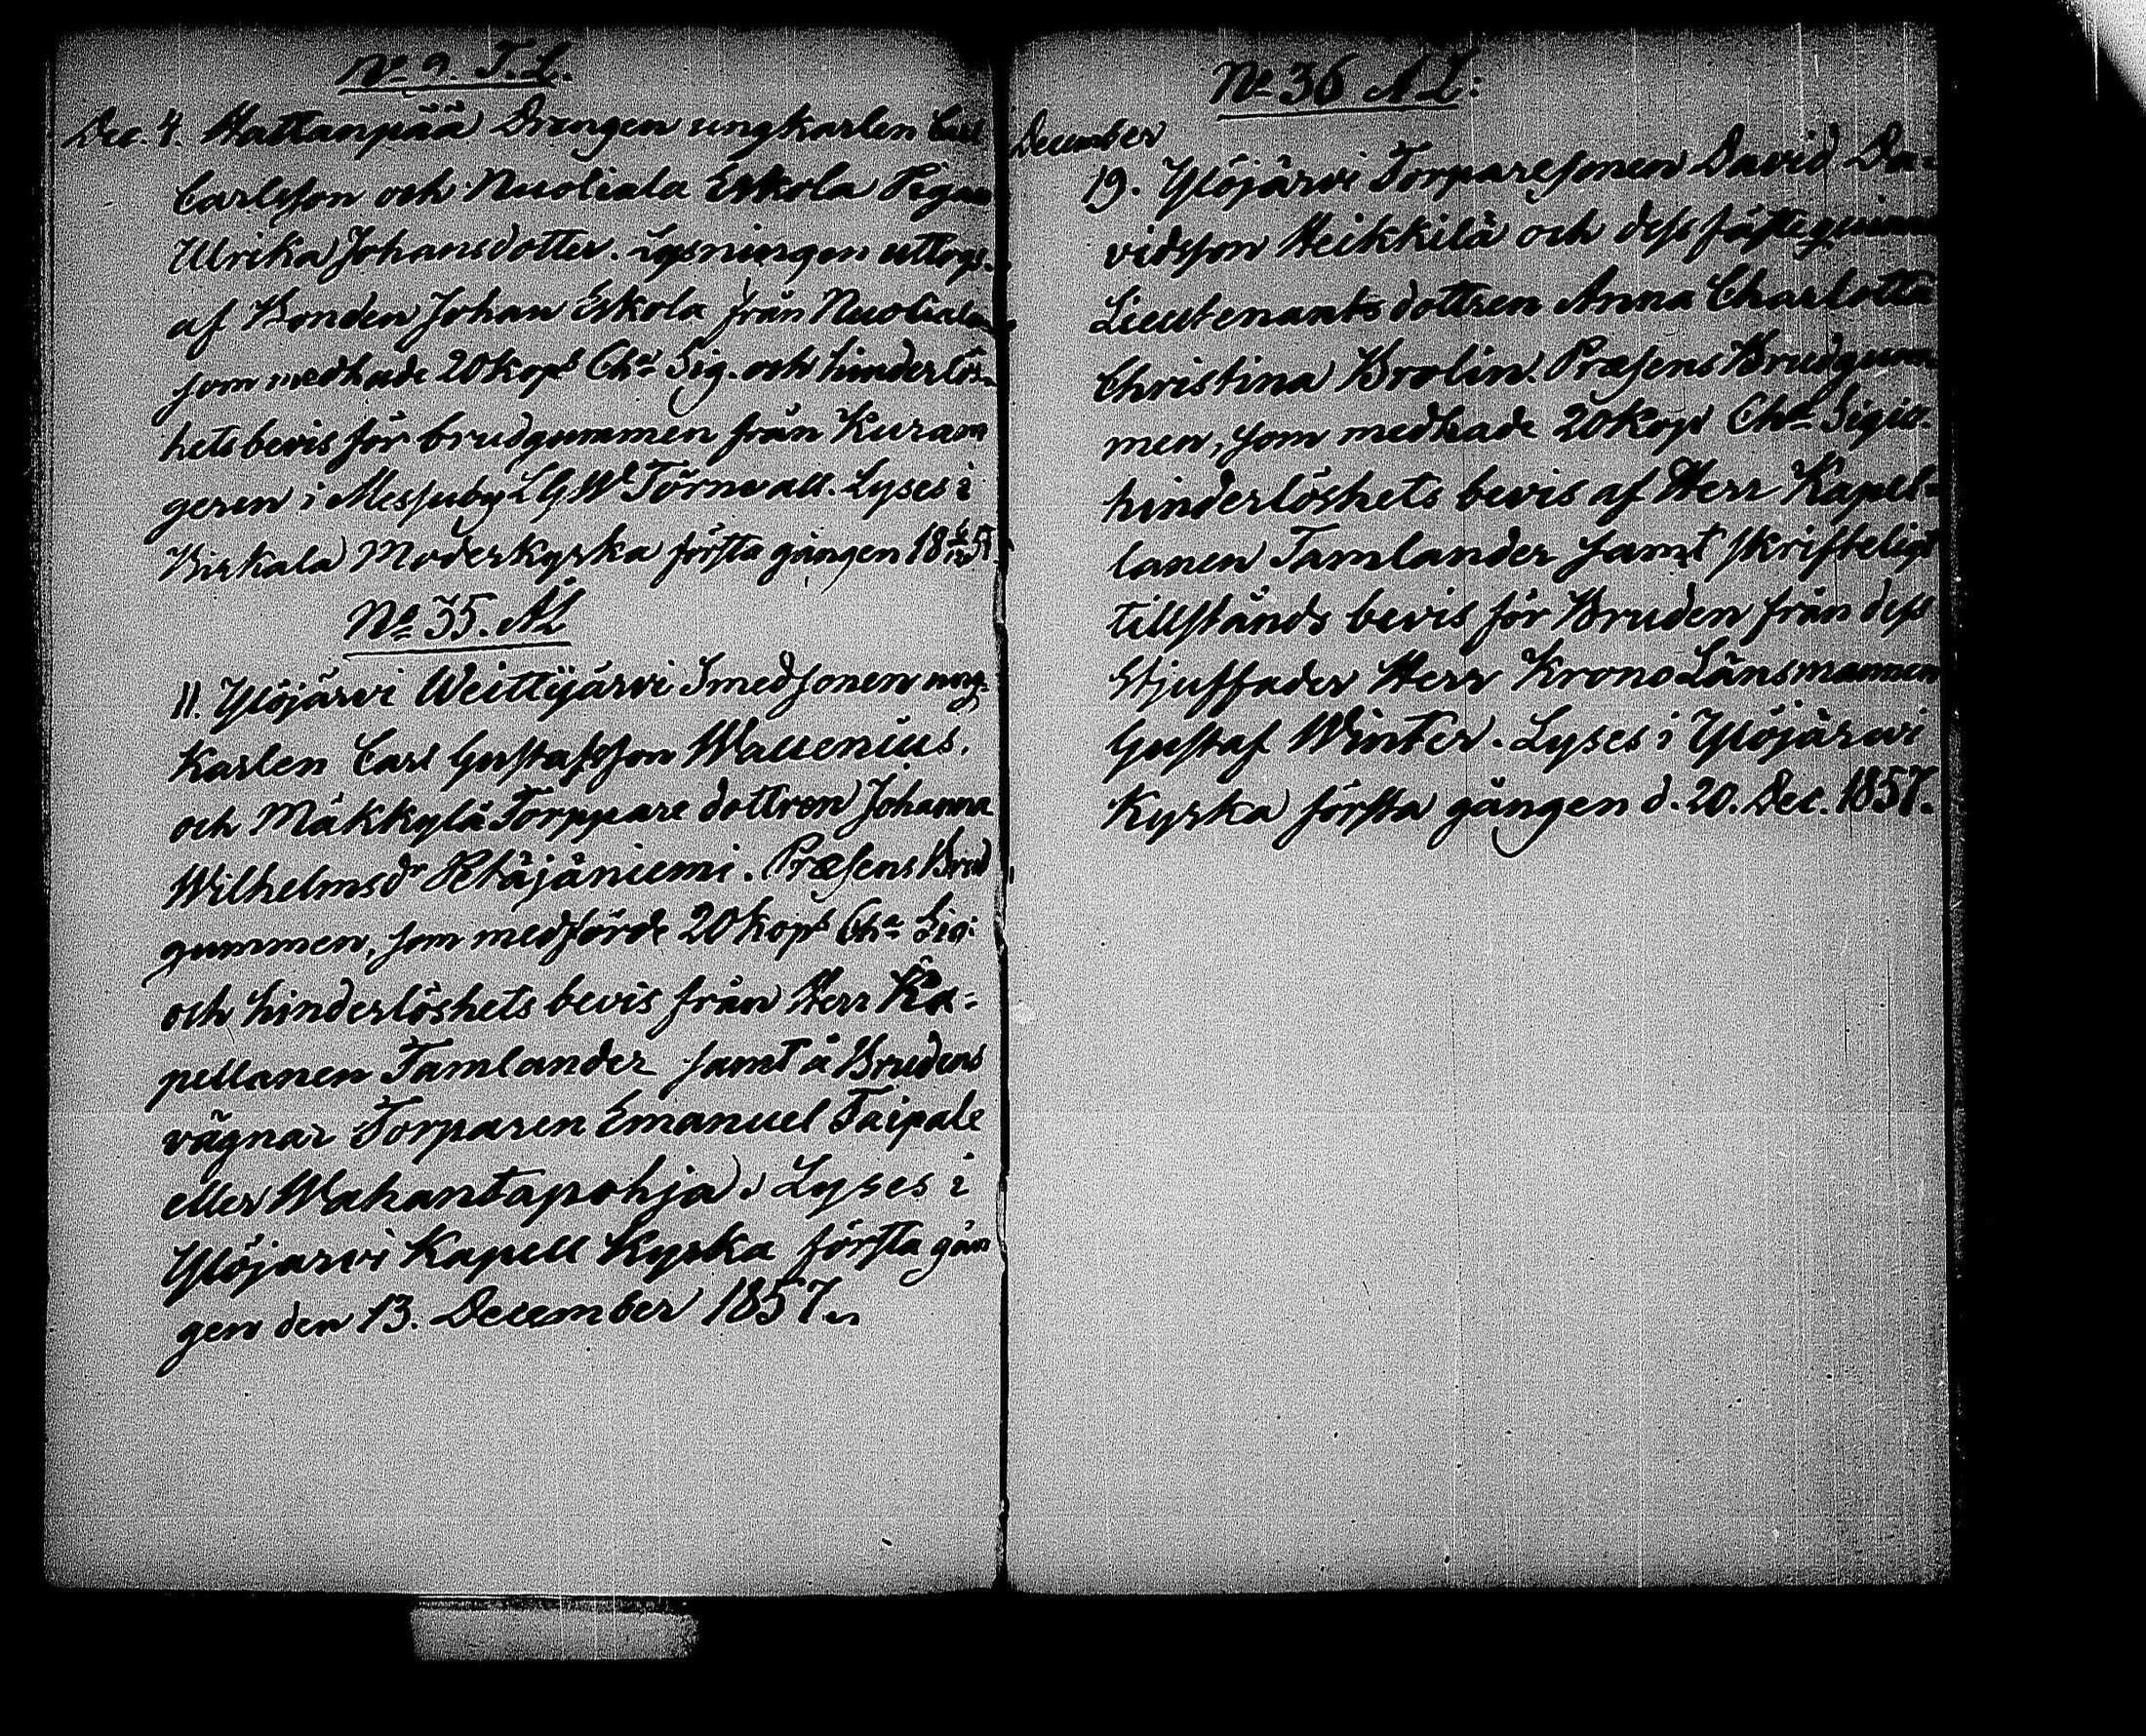 No 9. T. L.
Dec. 4. Hattanpää Drengen ungkarlen Carl
Carlsson och Nuoliala Eskola Pigan
Ulrika Johansdotter. Lysningen uttogs
af Bonden Johan Eskola från Nuoliala
som medhade 20 kops Cha Sig. och hinderlös-
hets bevis för brudgummen från
i Messuby Törnwall. Lyses i
Birkala Moderkyrka första gången 18 6/12 57.
No 35. AL
11. Ylöjärvi Weittijärvi Smedsonen ung-
karlen Carl Gustafsson Wallenius,
och Mäkkylä Torppare dottren Johanna
Wilhelmsdr Petäjäniemi. Præsens Brud
gummen, som medförde 20 kops Cha Sig:
och hinderlöshets bevis från Herr Ka=
pellanen Tamlander samt å Brudens
vägnar Torparen Emanuel Taipale
eller Wahantapohja. Lyses i
Ylöjärvi Kapell Kyrka första gån
gen den 13. December 1857.
No 36 AL:
December
19. Ylöjärvi Torparesonen David Da=
vidsson Heikkilä och dess fästeqvinna
Lieutenants dottren Anna Charlotta
Christina Brolin. Præsens Brudgum
men, som medhade 20 kops Cha Sigis.
hinderlöshets bevis af Herr Kapel=
lanen Tamlander samt skrifteligt
tillstånds bevis för Bruden från dess
Stjuffader Herr Krono Länsmannen
Gustaf Winter. Lyses i Ylöjärvi
Kyrka första gången d. 20. Dec. 1857.